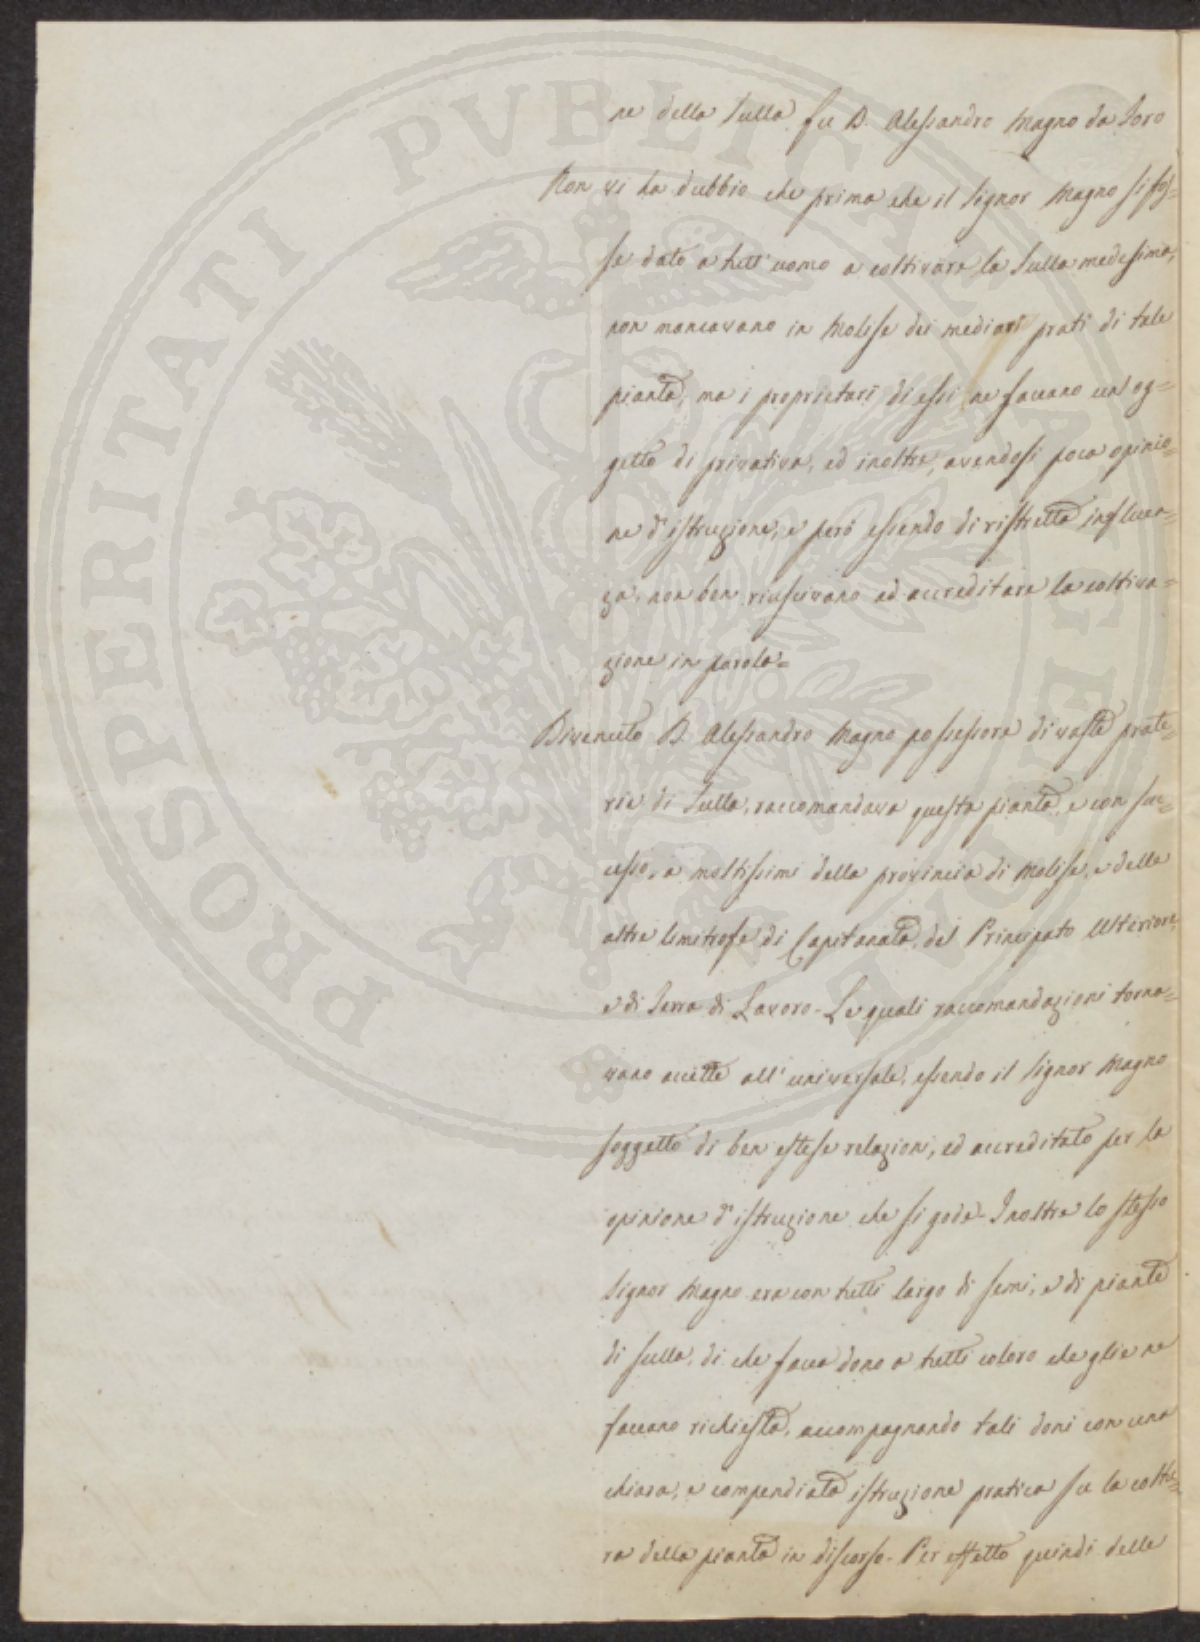 ne della Sulla fu D. Alessandro Magno da Toro
Non vi ha dubbio che prima che il Signor Magno si fos=
se dato a tutt'uomo a coltivare la Sulla medesima,
non mancavano in Molise dei mediari prati di tale
pianta, ma i proprietari di essi ne facevano un og=
getto di privativa, ed inoltre, avendosi poca opinio=
ne d'istruzione, e però essendo di ristretta influen=
za, non ben riuscivano ad accreditare la coltiva=
zione in parola=
Divenuto D. Alessandro Magno possessore di vaste prate=
rie di Sulla, raccomandava questa pianta, e con suc=
cesso, a moltissimi della provincia di Molise, e delle
altre limitrofe di Capitanata, del Principato Ulteriore,
e di Terra di Lavoro. Le quali raccomandazioni torna=
vano accette all'universale, essendo il Signor Magno
soggetto di ben estese relazioni, ed accreditato per la
opinione d'istruzione che si gode. Inoltre lo stesso
Signor Magno era con tutti largo di semi, e di piante
di sulla, di che facea dono a tutti coloro che glie ne
faceano richiesta, accompagnando tali doni con una
chiara, e compendiata istruzione pratica su la coltu=
ra della pianta in discorso. Per effetto quindi delle
PROSPERITATI PVBLICAE AVGENDAE